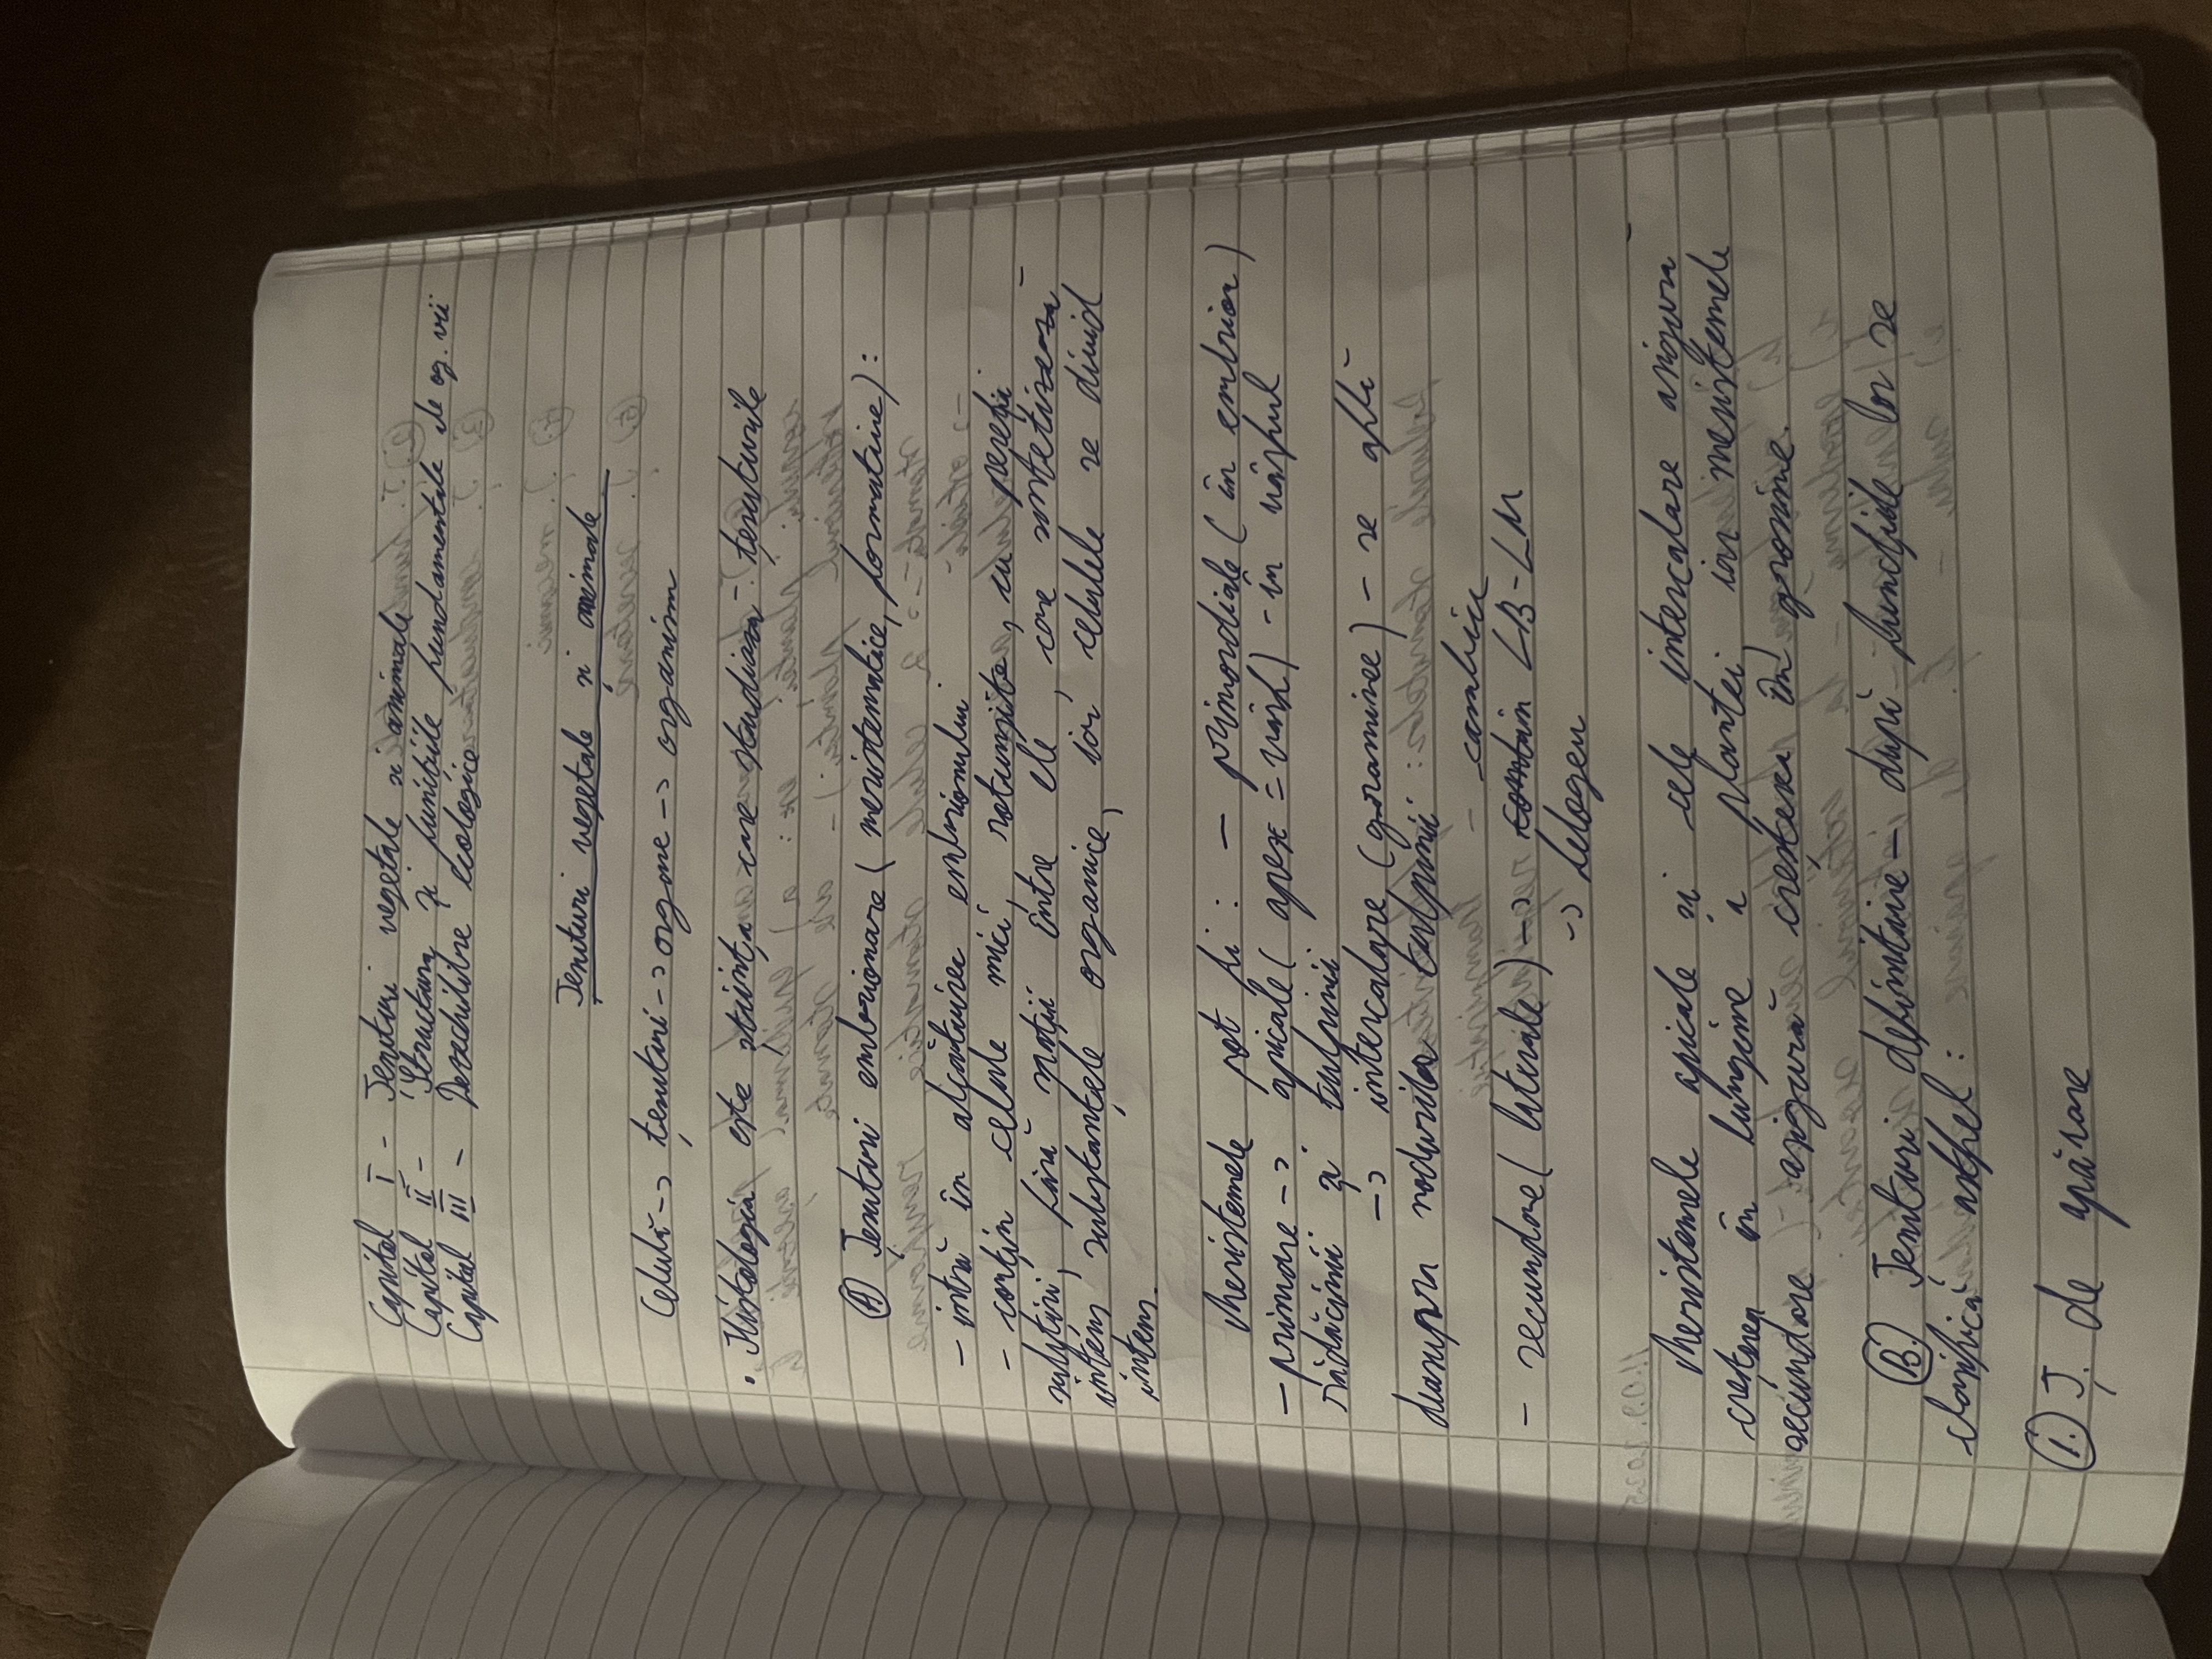 Capitol I - Țesuturi vegetale și animale
Capitol II - Structura și funcțiile fundamentale ale og. vii
Capitol III - Dezechilibre ecologice
Țesuturi vegetale și animale
Celulă -> țesuturi -> organe -> organism
• Histologia este știința care studiază țesuturile
(A) Țesuturi embrionare (meristematice, formative):
- intră în alcătuirea embrionului
- conțin celule mici, rotunjite, cu pereții
subțiri, fără spații între ele, care sintetizează
intens substanțele organice, iar celulele se divid
intens.
Meristemele pot fi: - primordiale (în embrion)
- primare -> apicale (apex = vârf) - în vârful
rădăcinii și tulpinii
-> intercalare (graminee) - se află
deasupra nodurilor tulpinii
- secundare (laterale) -> cambiu LB-LM
-> felogen
Meristemele apicale și cele intercalare asigură
creșterea în lungime a plantei iar meristemele
secundare asigură creșterea în grosime.
(B.) Țesuturi definitive - după funcțiile lor se
clasifică astfel:
(1.) Ț. de apărare